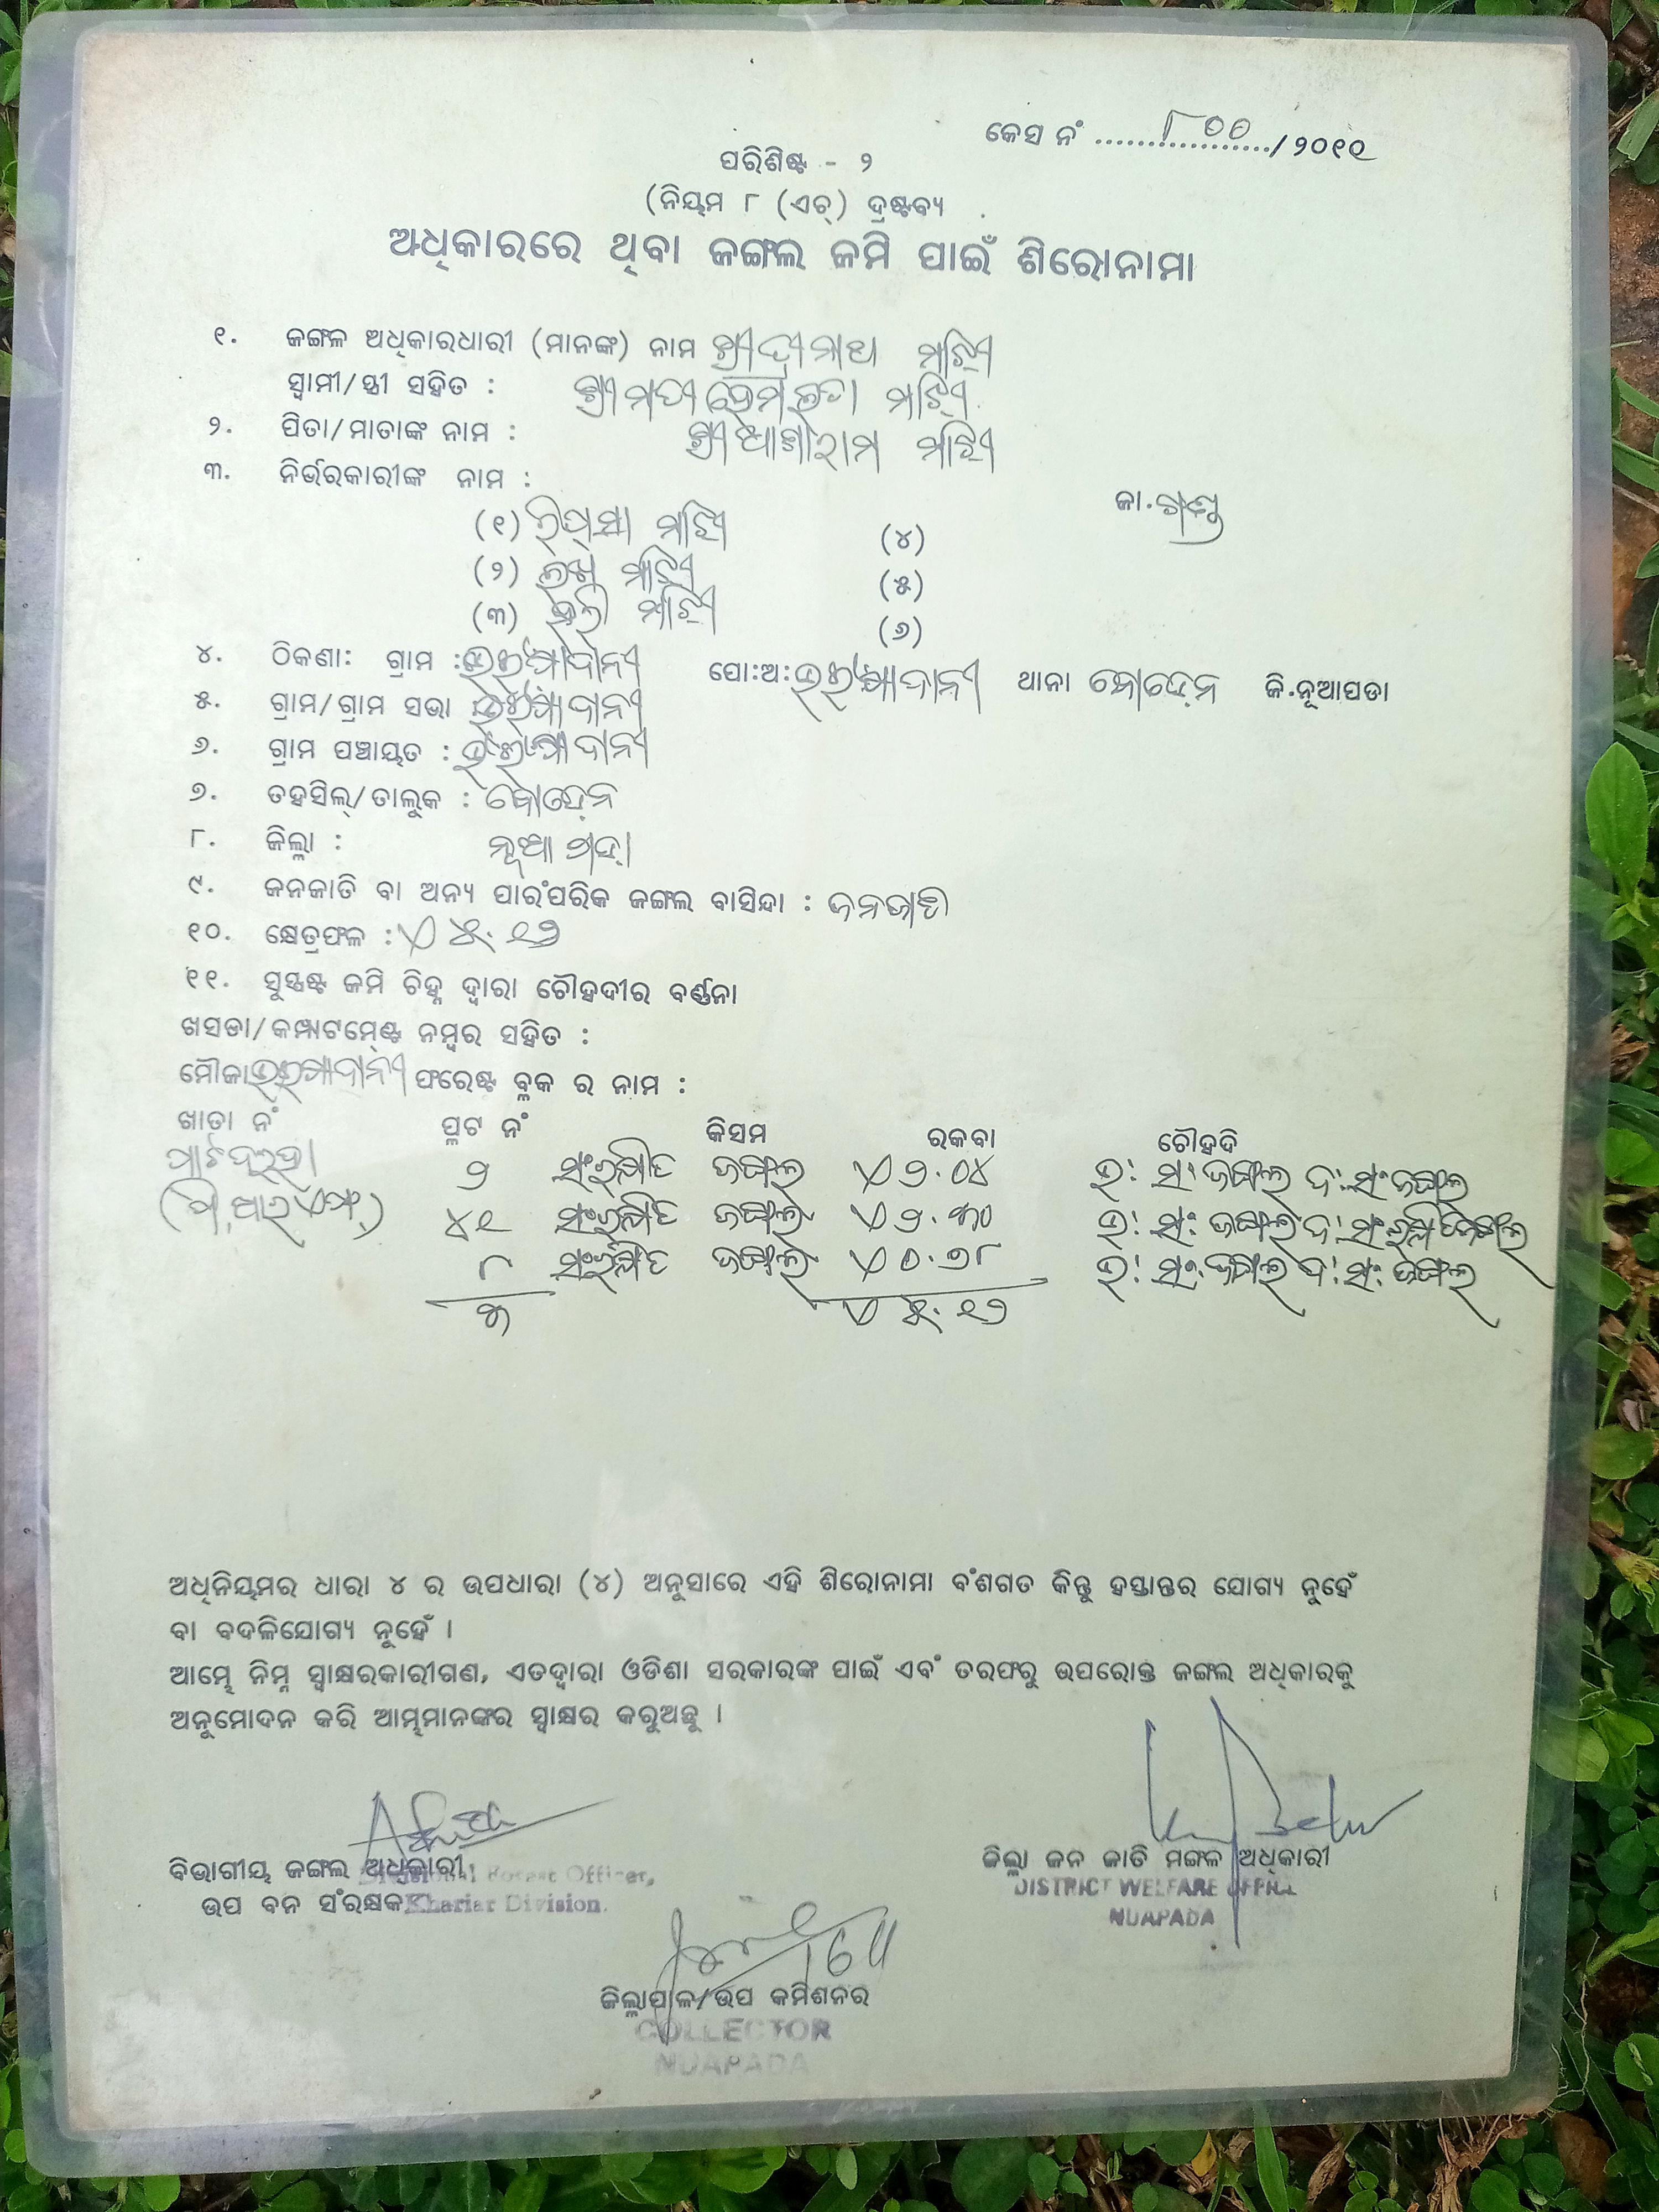 କେସ ନଂ ....୮୦୦..../୨୦୧୧
ପରିଶିଷ୍ଟ - ୨
(ନିୟମ ୮ (ଏଚ୍) ଦ୍ରଷ୍ଟବ୍ୟ
ଅଧିକାରରେ ଥିବା ଜଙ୍ଗଲ ଜମି ପାଇଁ ଶିରୋନାମା
୧. ଜଙ୍ଗଳ ଅଧିକାରଧାରୀ (ମାନଙ୍କ) ନାମ ମାଝି
ସ୍ୱାମୀ/ସ୍ତ୍ରୀ ସହିତ : ଶ୍ରୀମତୀ ହେମଲତା ମାଝି
୨. ପିତା/ମାତାଙ୍କ ନାମ : ଶ୍ରୀ ଆଶାରାମ ମାଝି
୩. ନିର୍ଭରକାରୀଙ୍କ ନାମ :
ଜା. ଗଣ୍ଡ
(୧) ମାଝି (୪)
(୨) ମାଝି (୫)
(୩) ମାଝି (୬)
୪. ଠିକଣା: ଗ୍ରାମ : ପୋ:ଅ: ଥାନା ବୋଡେନ ଜି.ନୂଆପଡା
୫. ଗ୍ରାମ/ଗ୍ରାମ ସଭା
୬. ଗ୍ରାମ ପଞ୍ଚାୟତ :
୭. ତହସିଲ୍/ତାଲୁକ : ବୋଡେନ
୮. ଜିଲ୍ଲା : ନୂଆପଡା
୯. ଜନଜାତି ବା ଅନ୍ୟ ପାରଂପରିକ ଜଙ୍ଗଲ ବାସିନ୍ଦା : ଜନଜାତି
୧୦. କ୍ଷେତ୍ରଫଳ : ୫.୧୨
୧୧. ସୁସ୍ପଷ୍ଟ ଜମି ଚିହ୍ନ ଦ୍ୱାରା ଚୌହଦୀର ବର୍ଣ୍ଣନା
ଖସଡା/କମ୍ପାଟମେଣ୍ଟ ନମ୍ବର ସହିତ :
ମୌଜା ଫରେଷ୍ଟ ବ୍ଲକ ର ନାମ :
ଖାତା ନଂ ପ୍ଲଟ ନଂ କିସମ ରକବା ଚୌହଦି
ପାଟଦରହା ୨ ସଂରକ୍ଷିତ ଜଙ୍ଗଲ ୨.୦୪ ଉ: ସଂ ଜଙ୍ଗଲ ଦ: ସଂ ଜଙ୍ଗଲ
(ପି.ଆର.ଏଫ୍.) ୪୧ ସଂରକ୍ଷିତ ଜଙ୍ଗଲ ୨.୩୦ ଉ: ସଂ: ଜଙ୍ଗଲ ଦ: ସଂରକ୍ଷିତ ଜଙ୍ଗଲ
୮ ସଂରକ୍ଷିତ ଜଙ୍ଗଲ ୦.୭୮ ଉ: ସଂ. ଜଙ୍ଗଲ ଦ: ସଂ. ଜଙ୍ଗଲ
୩ ୫.୧୨
ଅଧିନିୟମର ଧାରା ୪ ର ଉପଧାରା (୪) ଅନୁସାରେ ଏହି ଶିରୋନାମା ବଂଶଗତ କିନ୍ତୁ ହସ୍ତାନ୍ତର ଯୋଗ୍ୟ ନୁହେଁ
ବା ବଦଳିଯୋଗ୍ୟ ନୁହେଁ ।
ଆମ୍ଭେ ନିମ୍ନ ସ୍ୱାକ୍ଷରକାରୀଗଣ, ଏତଦ୍ୱାରା ଓଡିଶା ସରକାରଙ୍କ ପାଇଁ ଏବଂ ତରଫରୁ ଉପରୋକ୍ତ ଜଙ୍ଗଲ ଅଧିକାରକୁ
ଅନୁମୋଦନ କରି ଆମ୍ଭମାନଙ୍କର ସ୍ୱାକ୍ଷର କରୁଅଛୁ ।
ବିଭାଗୀୟ ଜଙ୍ଗଲ ଅଧିକାରୀ Divisional Forest Officer,
ଉପ ବନ ସଂରକ୍ଷକ Khariar Division.
ଜିଲ୍ଲା ଜନ ଜାତି ମଙ୍ଗଳ ଅଧିକାରୀ
DISTRICT WELFARE OFFICE
NUAPADA
ଜିଲ୍ଲାପାଳ/ଉପ କମିଶନର
COLLECTOR
NUAPADA